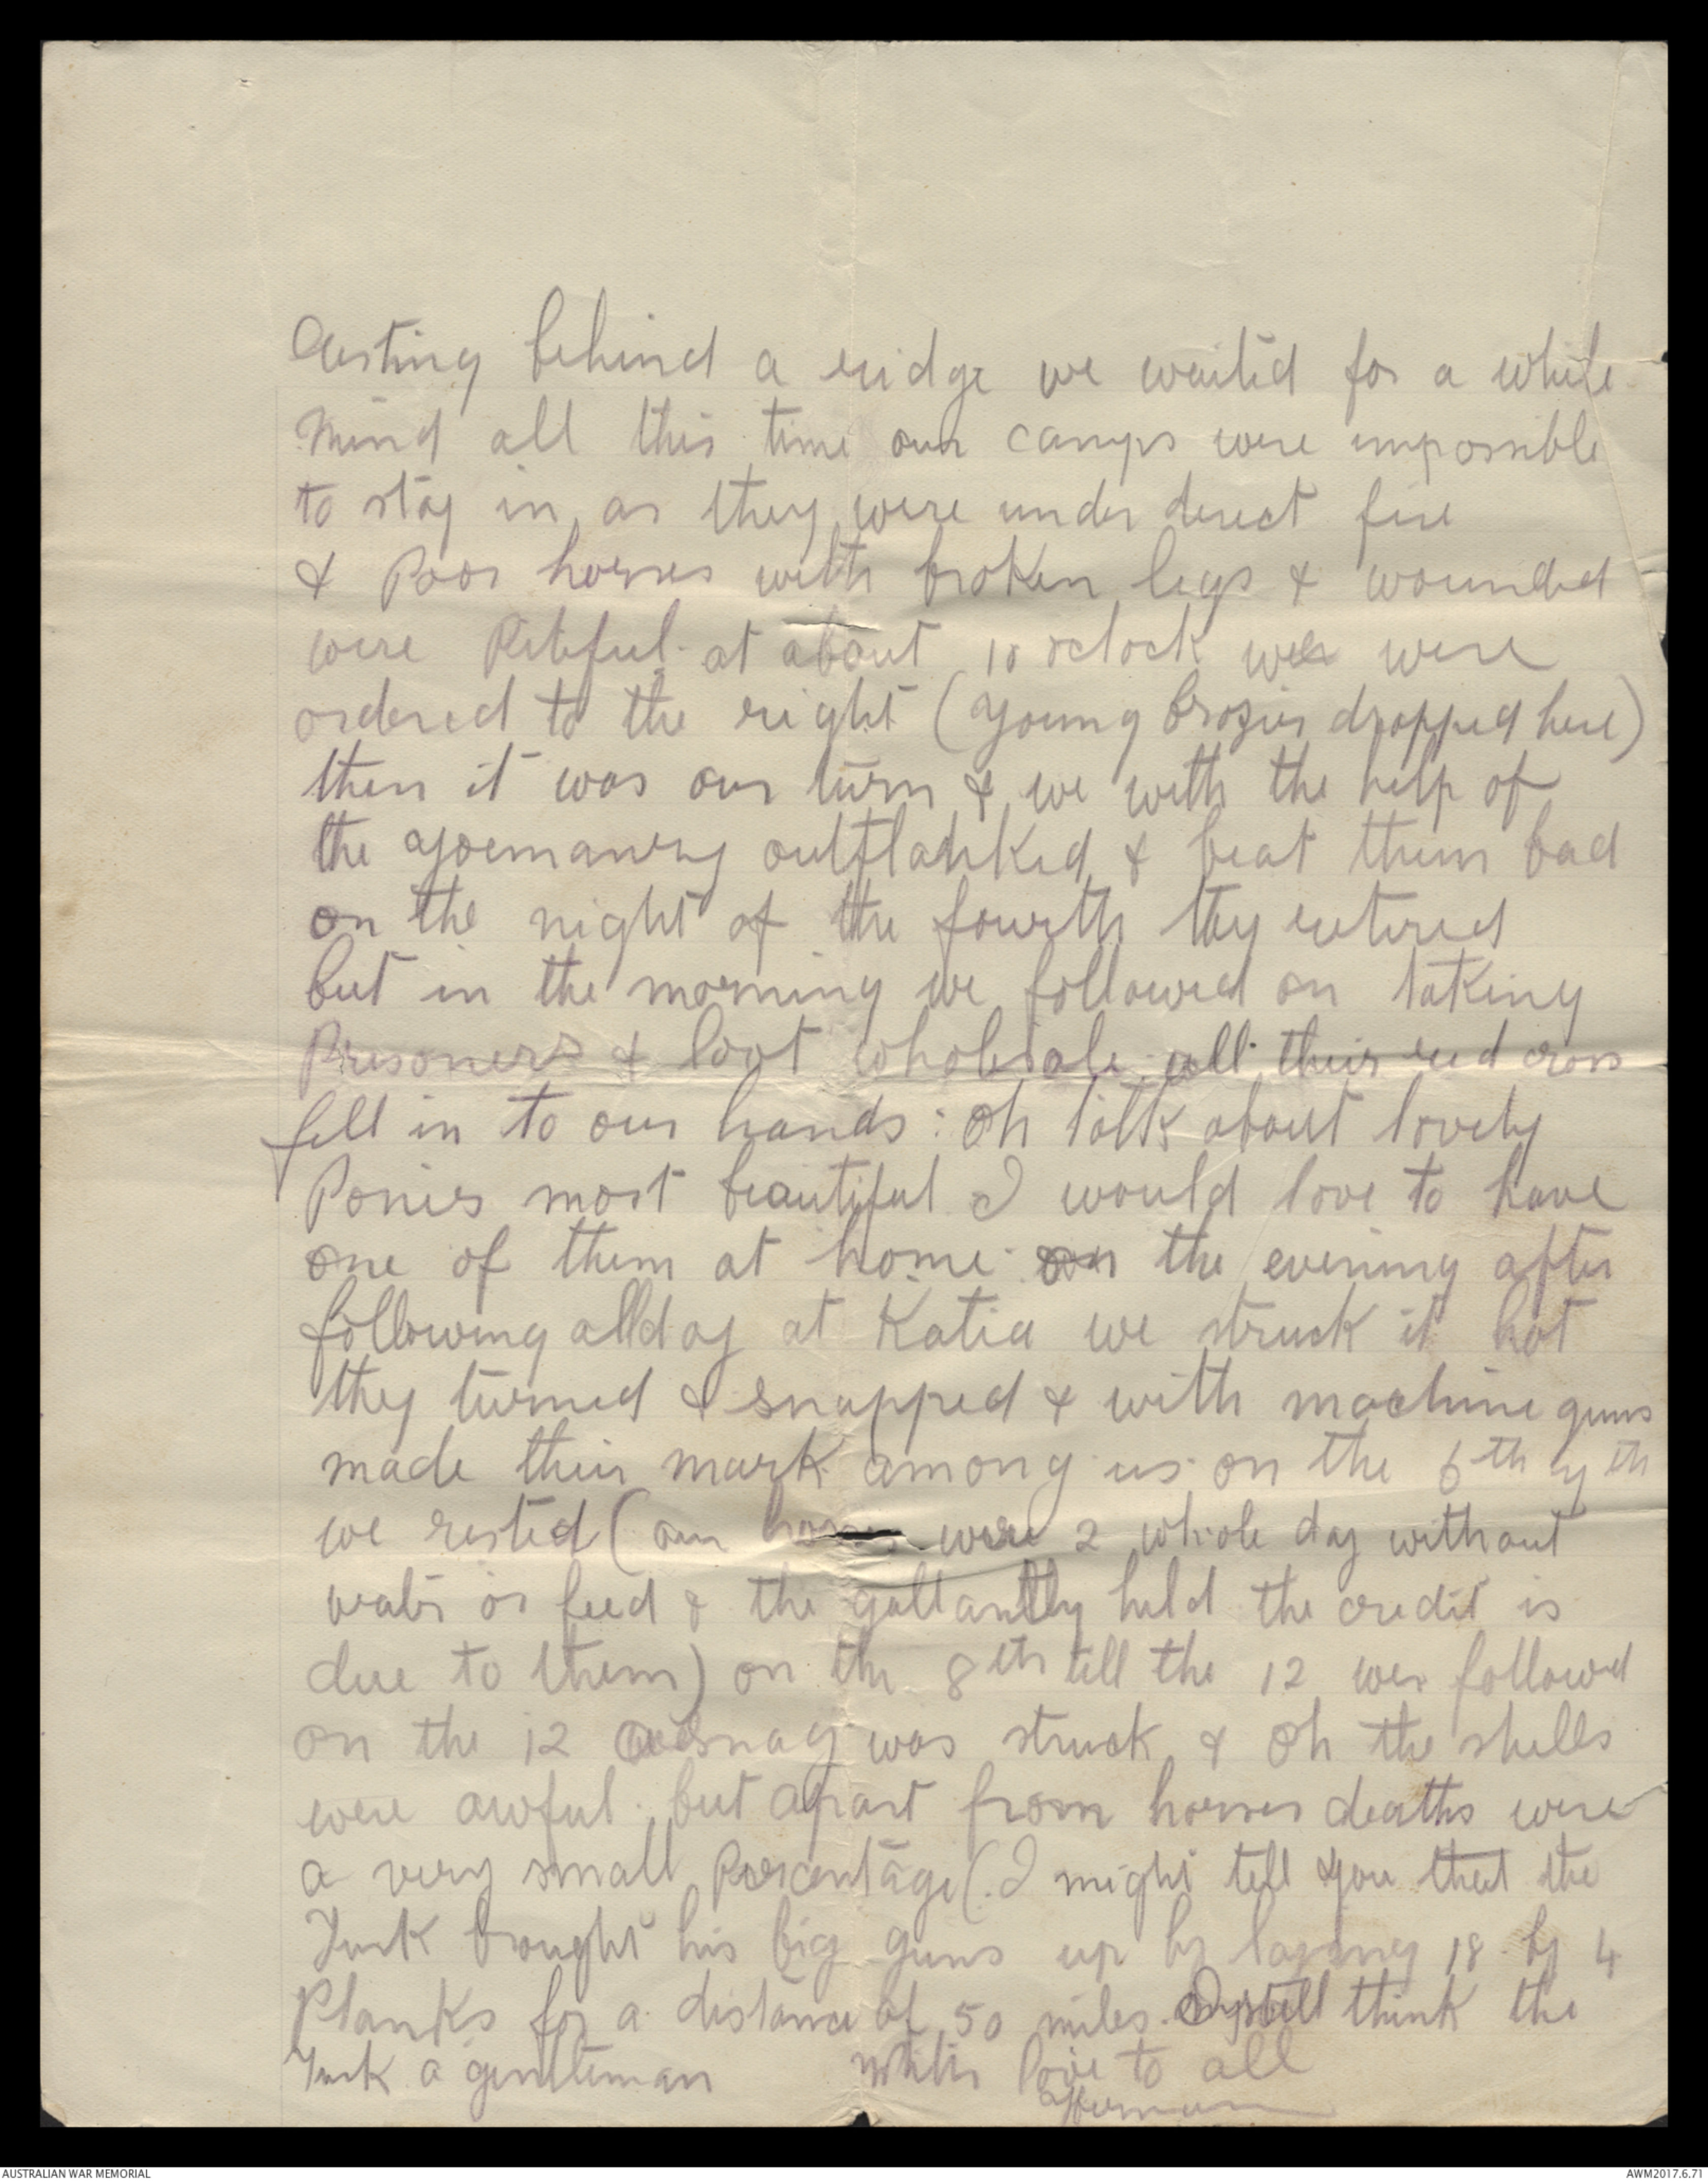 Resting behind a ridge we waited for a while
mind all this time our camps were impossible
to stay in, as they were under derect fire
& Poor horses with broken legs & wounded
were Pitiful. at about 10 oclock we were
ordered to the right (young Brozier dropped here)
then it was our turn & we with the help of
the yoemanry outflanked & beat them bad
on the night of the fourth they retired
but in the morning we followed on taking
Prisoners & loot wholesale all their red cross
fell in to our hands: oh talk about lovely
Ponies most beautiful I would love to have
one of them at home. on the evening after
following all day at Katia we struck it hot
they turned & snapped & with machine guns
made their mark among us. on the 6th 7th
we rested (our horses were 2 whole day without
water or feed & the gallantly held the credit is
due to them) on the 8th till the 12 we followed
on the 12 was struck & oh the shells
were awful. but apart from horses deaths were
a very small Percentage (I might tell you that the
Turk brought his big guns up by laying 18 by 4
Planks for a distance of 50 miles. still think the
Turk a gentleman With love to all
Norman
AUSTRALIAN WAR MEMORIAL
AWM2017.6.71